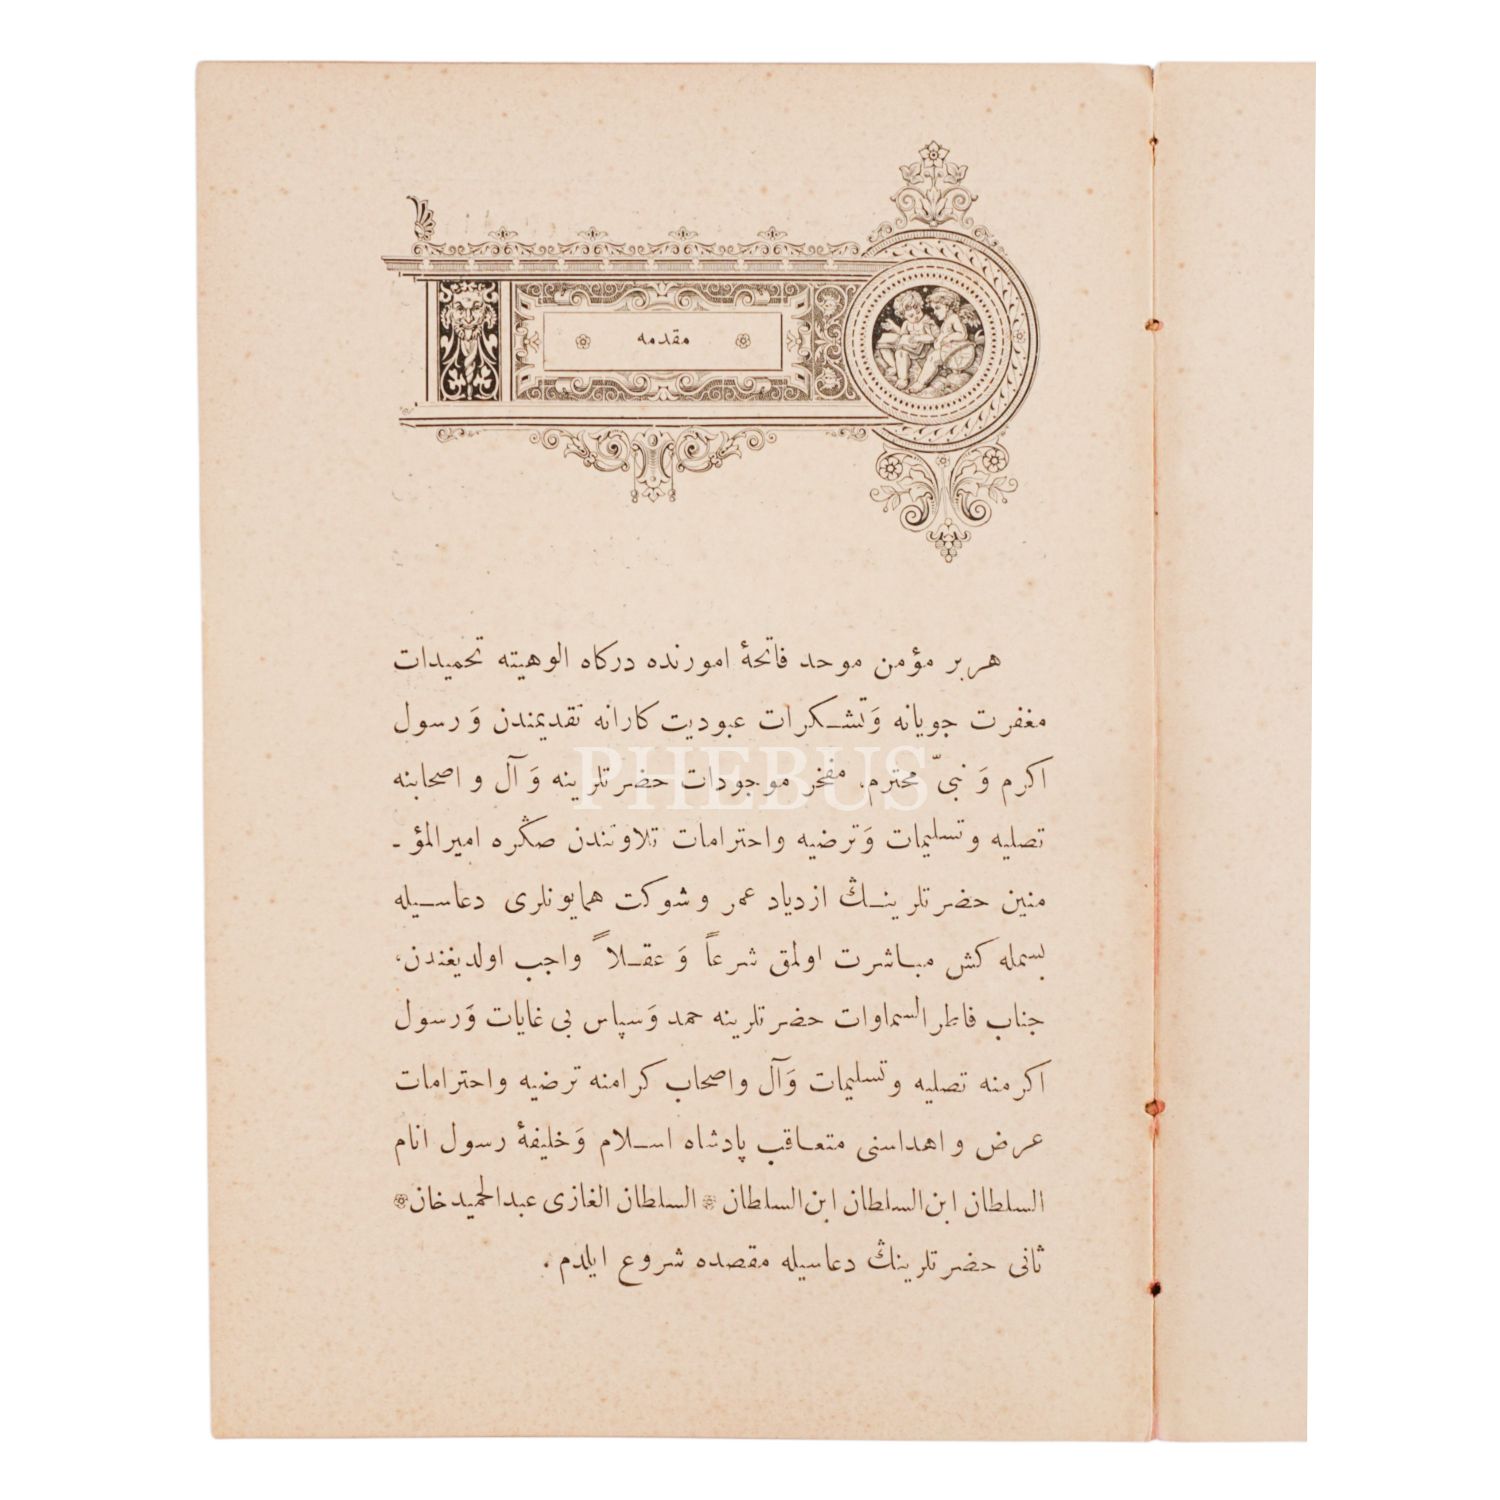 مقدمه
هربر مؤمن موحد فاتحهٔ امورنده درکاه الوهیته تحمیدات
مغفرت جویانه وَتشـکرات عبودیت کارانه تقدیمندن وَ رسول
اکرم وَ نبیّ محترم، مفخر موجودات حضرتلرینه وَ آل و اصحابنه
تصلیه و تسلیمات وَترضیه واحترامات تلاوتندن صڭره امیرالمؤ ـ
منین حضرتلرینـڭ ازدیاد عمر و شوکت همایونلری دعاسـیله
بسمله کش مبـاشرت اولمق شرعاً وَ عقـلاً واجب اولدیغندن،
جناب فاطرالسماوات حضرتلرینه حمد وَسپاس بی غایات وَرسول
اکرمنه تصلیه و تسلیمات وَآل واصحاب کرامنه ترضیه واحترامات
عرض و اهداسنی متعـاقب پادشاه اسـلام وَخلیفهٔ رسول انام
السلطان ابن السلطان ابن السلطان * السلطان الغازی عبدالحمیدخان *
ثانی حضرتلرینڭ دعاسیله مقصده شروع ایلدم .
PHEBUS